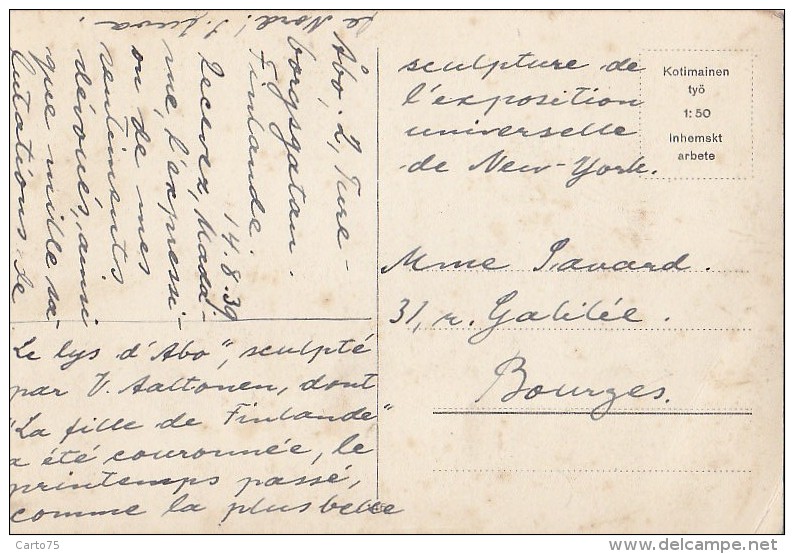 Åbo, 2, Ture-
borgsgatan.
Finlande.
14.8.39
Recevez, Mada-
me, l'expressi-
on de mes
sentiments
dévoués, ainsi
que mille sa-
lutations de
le Nord!
"Le lys d'Åbo", sculpté
par V. Aaltonen, dont
"La fille de Finlande"
a été couronnée, le
printemps passé,
comme la plus belle
sculpture de
l'exposition
universelle
de New-York.
Kotimainen
työ
1:50
Inhemskt
arbete
Mme Savard.
31, r. Galilée.
Bourges.
Carto75
http://www.delcampe.net